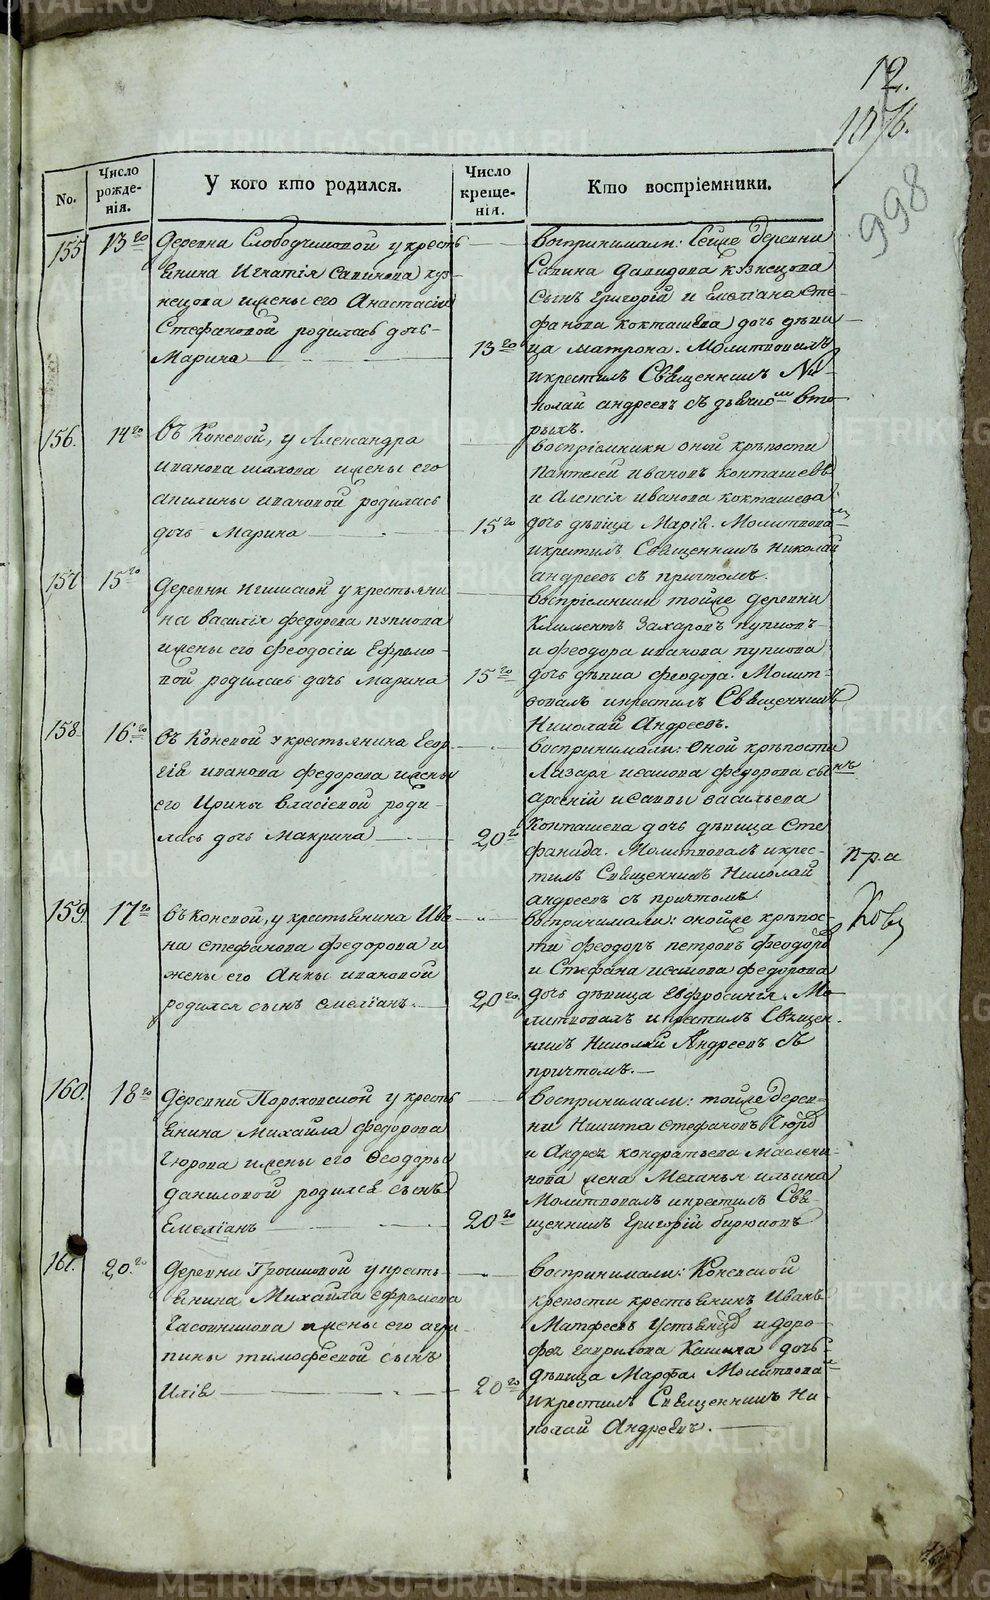 12.
998
No.
Число рожде-
нія.
У кого кто родился.
Число креще-
нія.
Кто воспріемники.
155
13го
Деревни Слободчиковой у кресть
янина Игнатія Савинова куз-
нецова и жены его Анастасіи
Стефановой родилась дочь
Марина
13го
воспринимали: Сейже деревни
Савина давидова кузнецова
сынъ григорій и Емеліана Сте-
фанова кокташева дочь дѣви
ца матрона. Молитвовалъ
и крестилъ Священникъ Ни-
колай андреевъ съ
156.
14го
Въ Коневой, у Александра
иванова шахова и жены его
апилины ивановой родилась
дочь Марина
15го
воспріемники оной крѣпости
Пантелей ивановъ кокташевъ
и Алексія иванова кокташева
дочь дѣвица Марія. Молитвова
и крестилъ Священникъ николай
андреевъ съ причтомъ.
157
15го
Деревни у крестьяни
на василія федорова пупкова
и жены его феодосіи Ефремо-
вой родилась дочь Марина
15го
воспріемники тойже деревни
Климентъ Захаровъ пупковъ
и феодора иванова пупкова
дочь дѣвица феодора. Молит-
вовалъ и крестилъ Священникъ
Николай Андреевъ.
158.
16го
въ Коневой у крестьянина Геор-
гія иванова федорова и жены
его Ирины власіевой роди-
лась дочь Макрина
20го
воспринимали: оной крѣпости
Лазаря исакова федорова сынъ
арсеній и саввы васильева
Кокташева дочь дѣвица Сте
фанида. Молитвовалъ и крес-
тилъ Священникъ Николай
андреевъ съ причтомъ
159.
17го
въ коневой, у крестьянина Ива
на стефанова федорова и
жены его Анны ивановой
родился сынъ емеліанъ.
20го.
воспринимали: онойже крѣпос-
ти феодоръ петровъ феодоровъ
и Стефана исакова федорова
дочь дѣвица Евфросинія. Мо-
литвовалъ и крестилъ Священ-
никъ Николай Андреевъ съ
причтомъ.
160.
18го
Деревни Пороховской у кресть
янина Михайла федорова
Гюрова и жены его Феодоры
даниловой родился сынъ
Емеліанъ
20го
воспринимали: тойже дерев-
ни Никита стефановъ Гюровъ
и Андрея кондратьева Масленни-
кова жена Меланья ильина
Молитвовалъ и крестилъ Свя-
щенникъ Григорій бирюковъ
161.
20.го
Деревни Грошиковой у кресть-
янина Михайла ефремова
Часовникова и жены его агри
пины тимофеевой сынъ
Илія
20го
воспринимали: Коневской
крепости крестьянинъ Иванъ
Матфеевъ Устьянцовъ и доро-
фея гаврилова Кашина дочь
дѣвица Марфа. Молитвова
и крестилъ Священникъ Ни-
колай Андреевъ.
METRIKI.GASO-URAL.RU